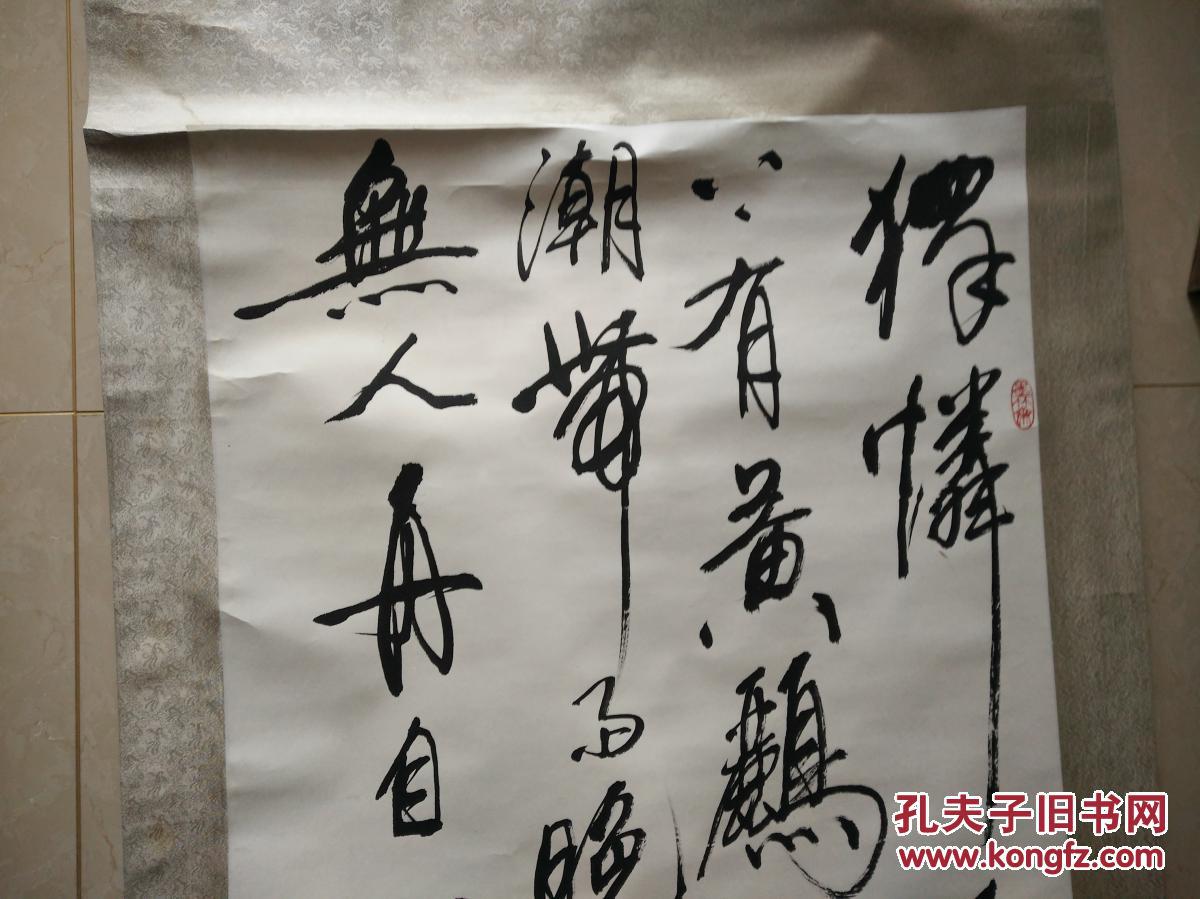 獨憐
上有黃鸝
潮帶雨晚
無人舟自
孔夫子旧书网
www.kongfz.com